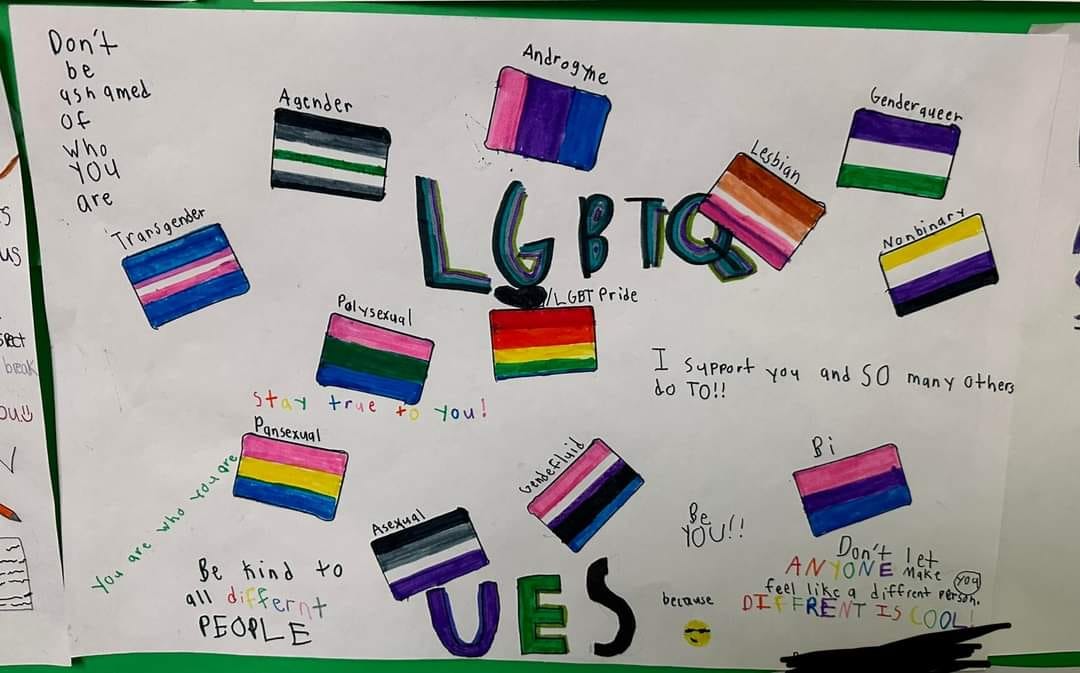 Don't
be
ashamed
of
who
YOU
are
Agender
Androgyne
Genderqueer
Lesbian
Transgender
Nonbinary
LGBTQ
/LGBT Pride
Polysexual
I support you and SO many others
do TO!!
stay true to you!
Pansexual
You are who you are
Gendefluid
Bi
Asexual
Be
YOU!!
Be kind to
all differnt
PEOPLE
UES
because
Don't let
ANYONE make you
feel like a diffrent person.
DIFFRENT IS COOL!
us
break